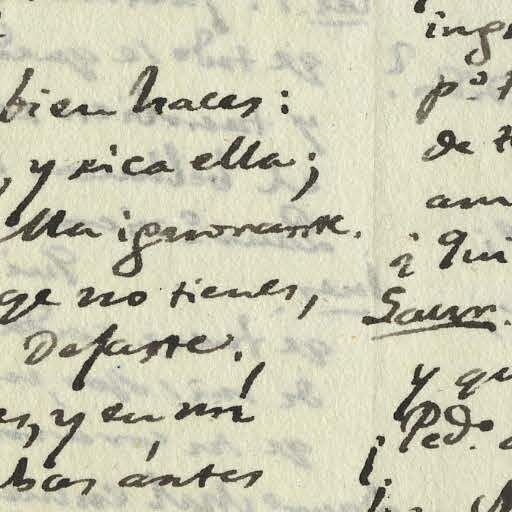 bien haces:
, y rica ella;
ella ignorante.
qe no tienes,
Defante.
es, y en mi
bas ántes
ingr
po.
de
am
¿Qui
Laur.
y qu
Pedo.